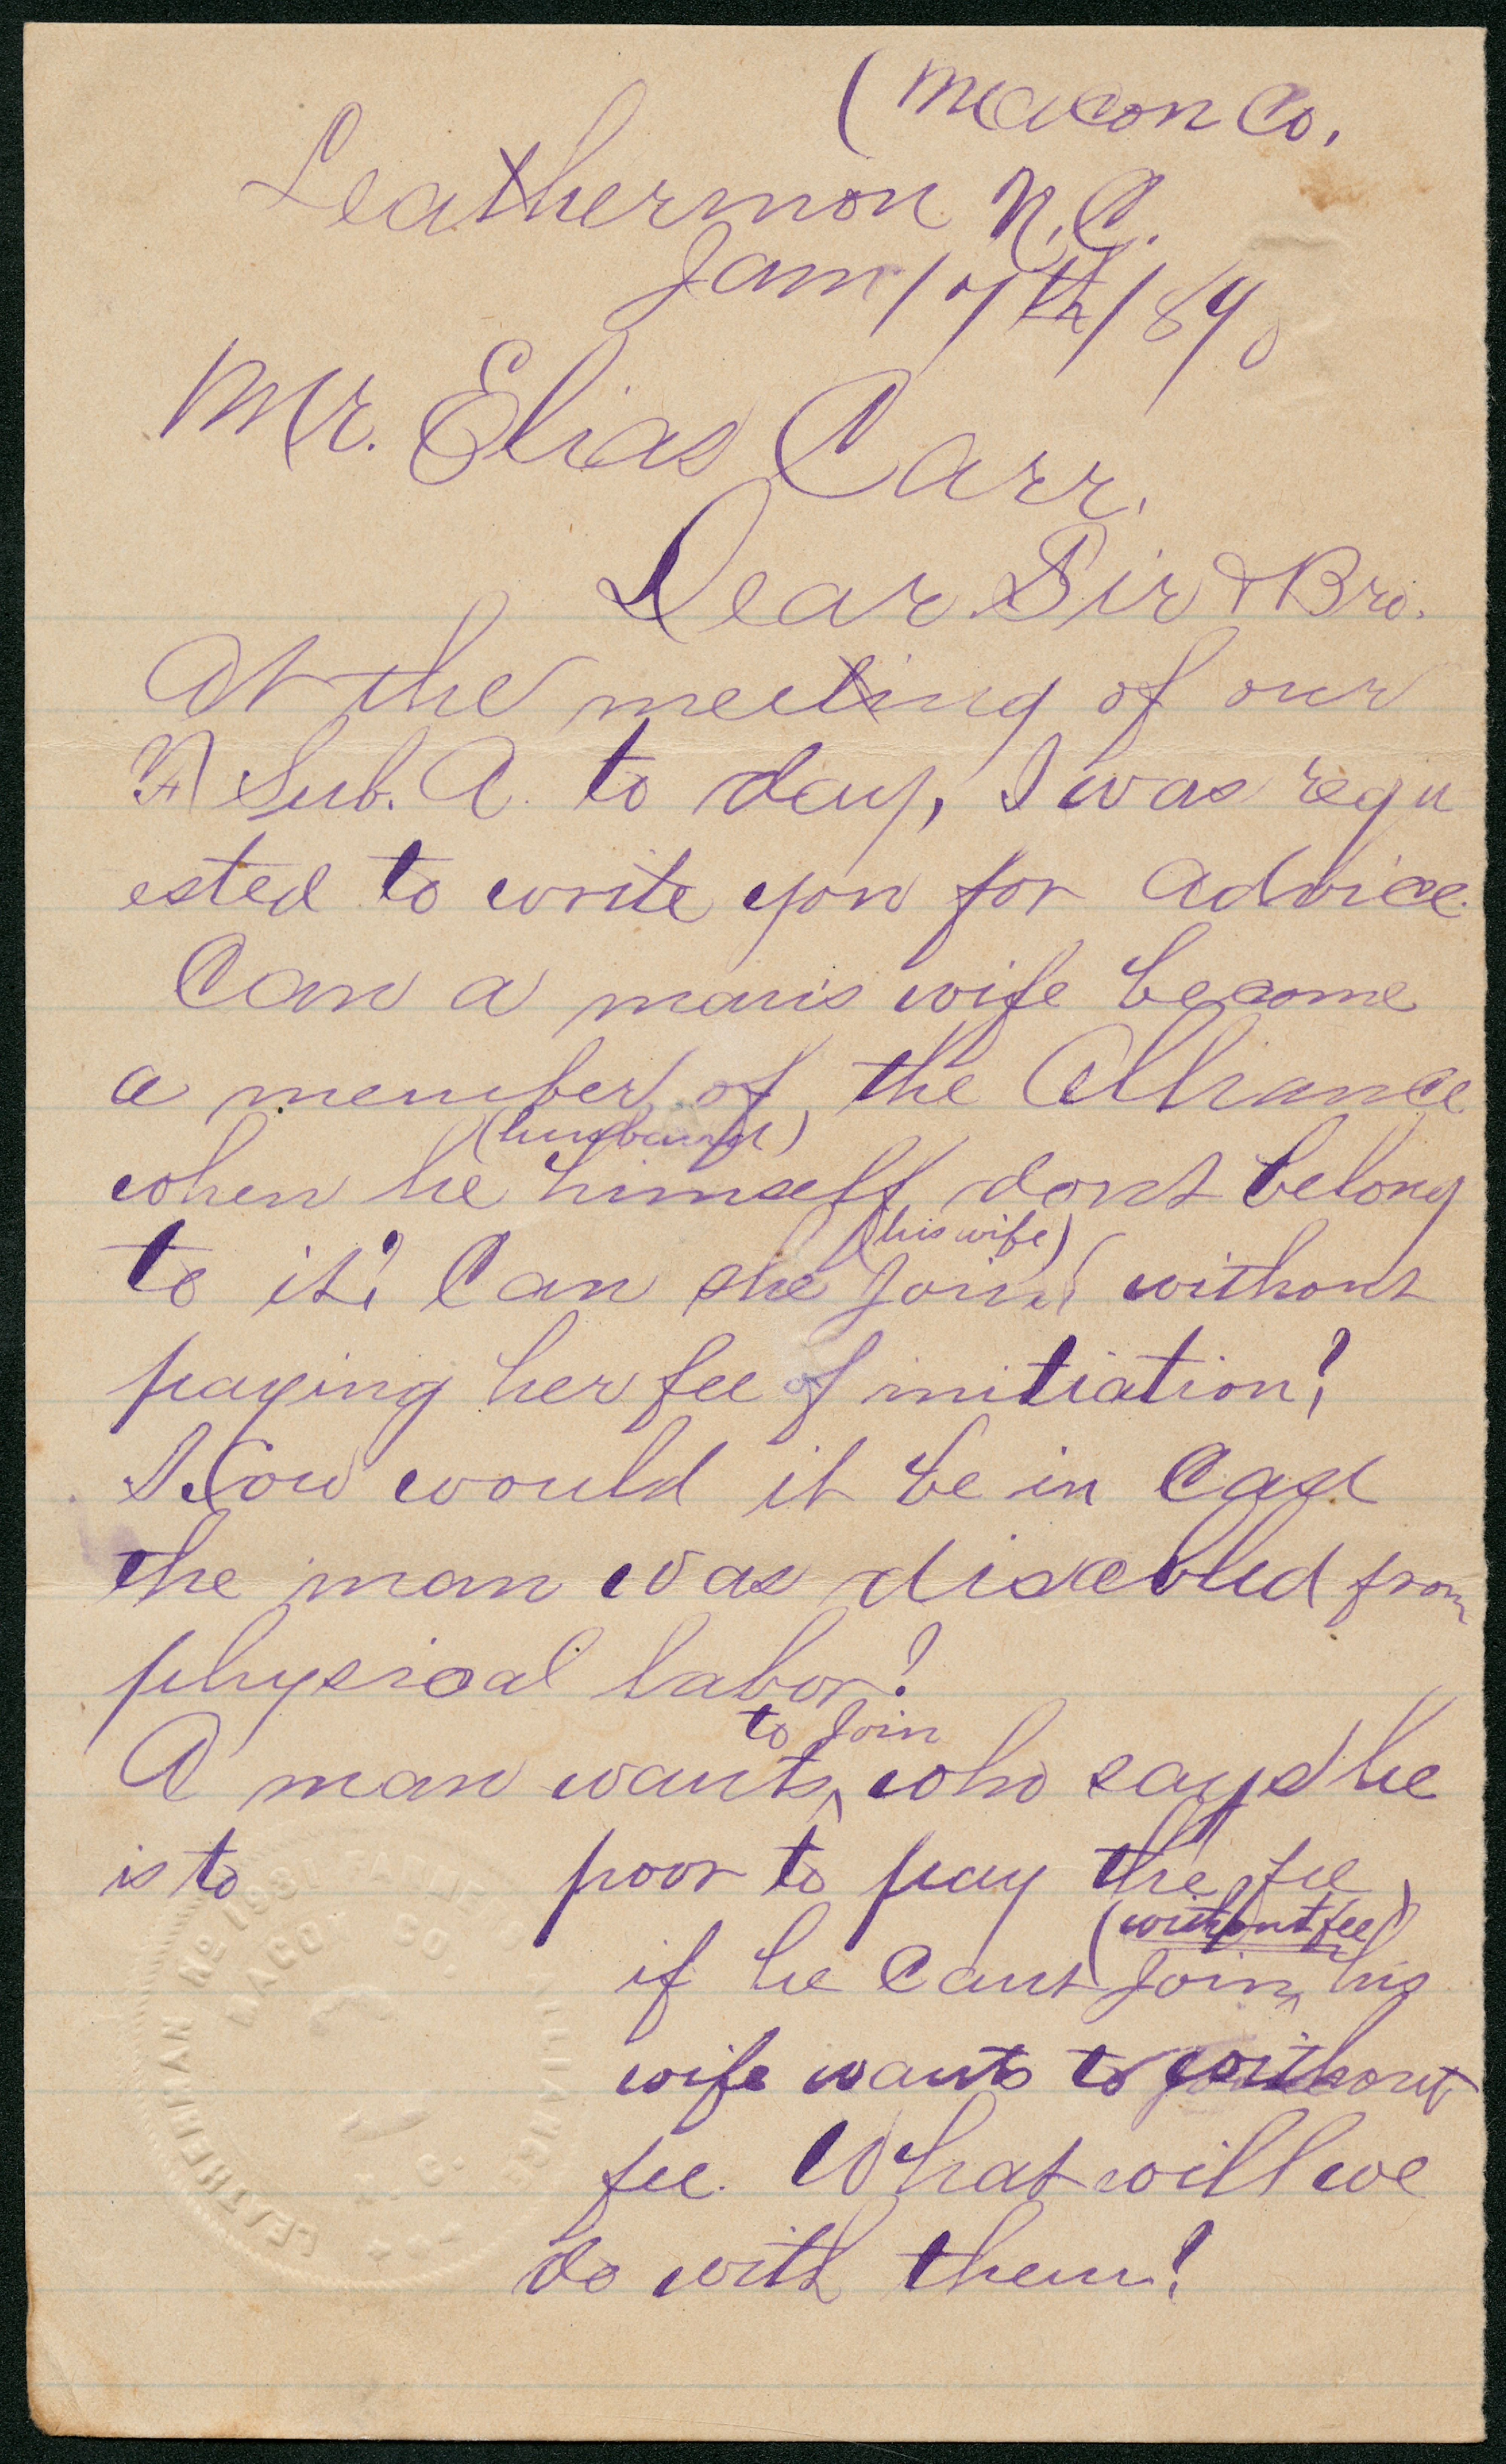 (Macon Co,
Leathermon N.C.
Jan. 17th/1890
Mr. Elias Carr.
Dear Sir & Bro.
At the meeting of our
Sub. A. to day, I was requ
ested to write you for advice.
Can a man's wife become
a member of the Alliance
(husband)
when he himself dont belong
to it? Can she (his wife)
Join, without
paying her fee of initiation?
How would it be in Case
the man was disabled from
physical labor?
to Join
A man wants, who says he
is to poor to pay the fee,
(without fee)
if he Cant Join, his
wife wants to without
fee. What will we
do with them?
LEATHERMAN No 1931 FA ALLIANCE
MACON CO
N. C.